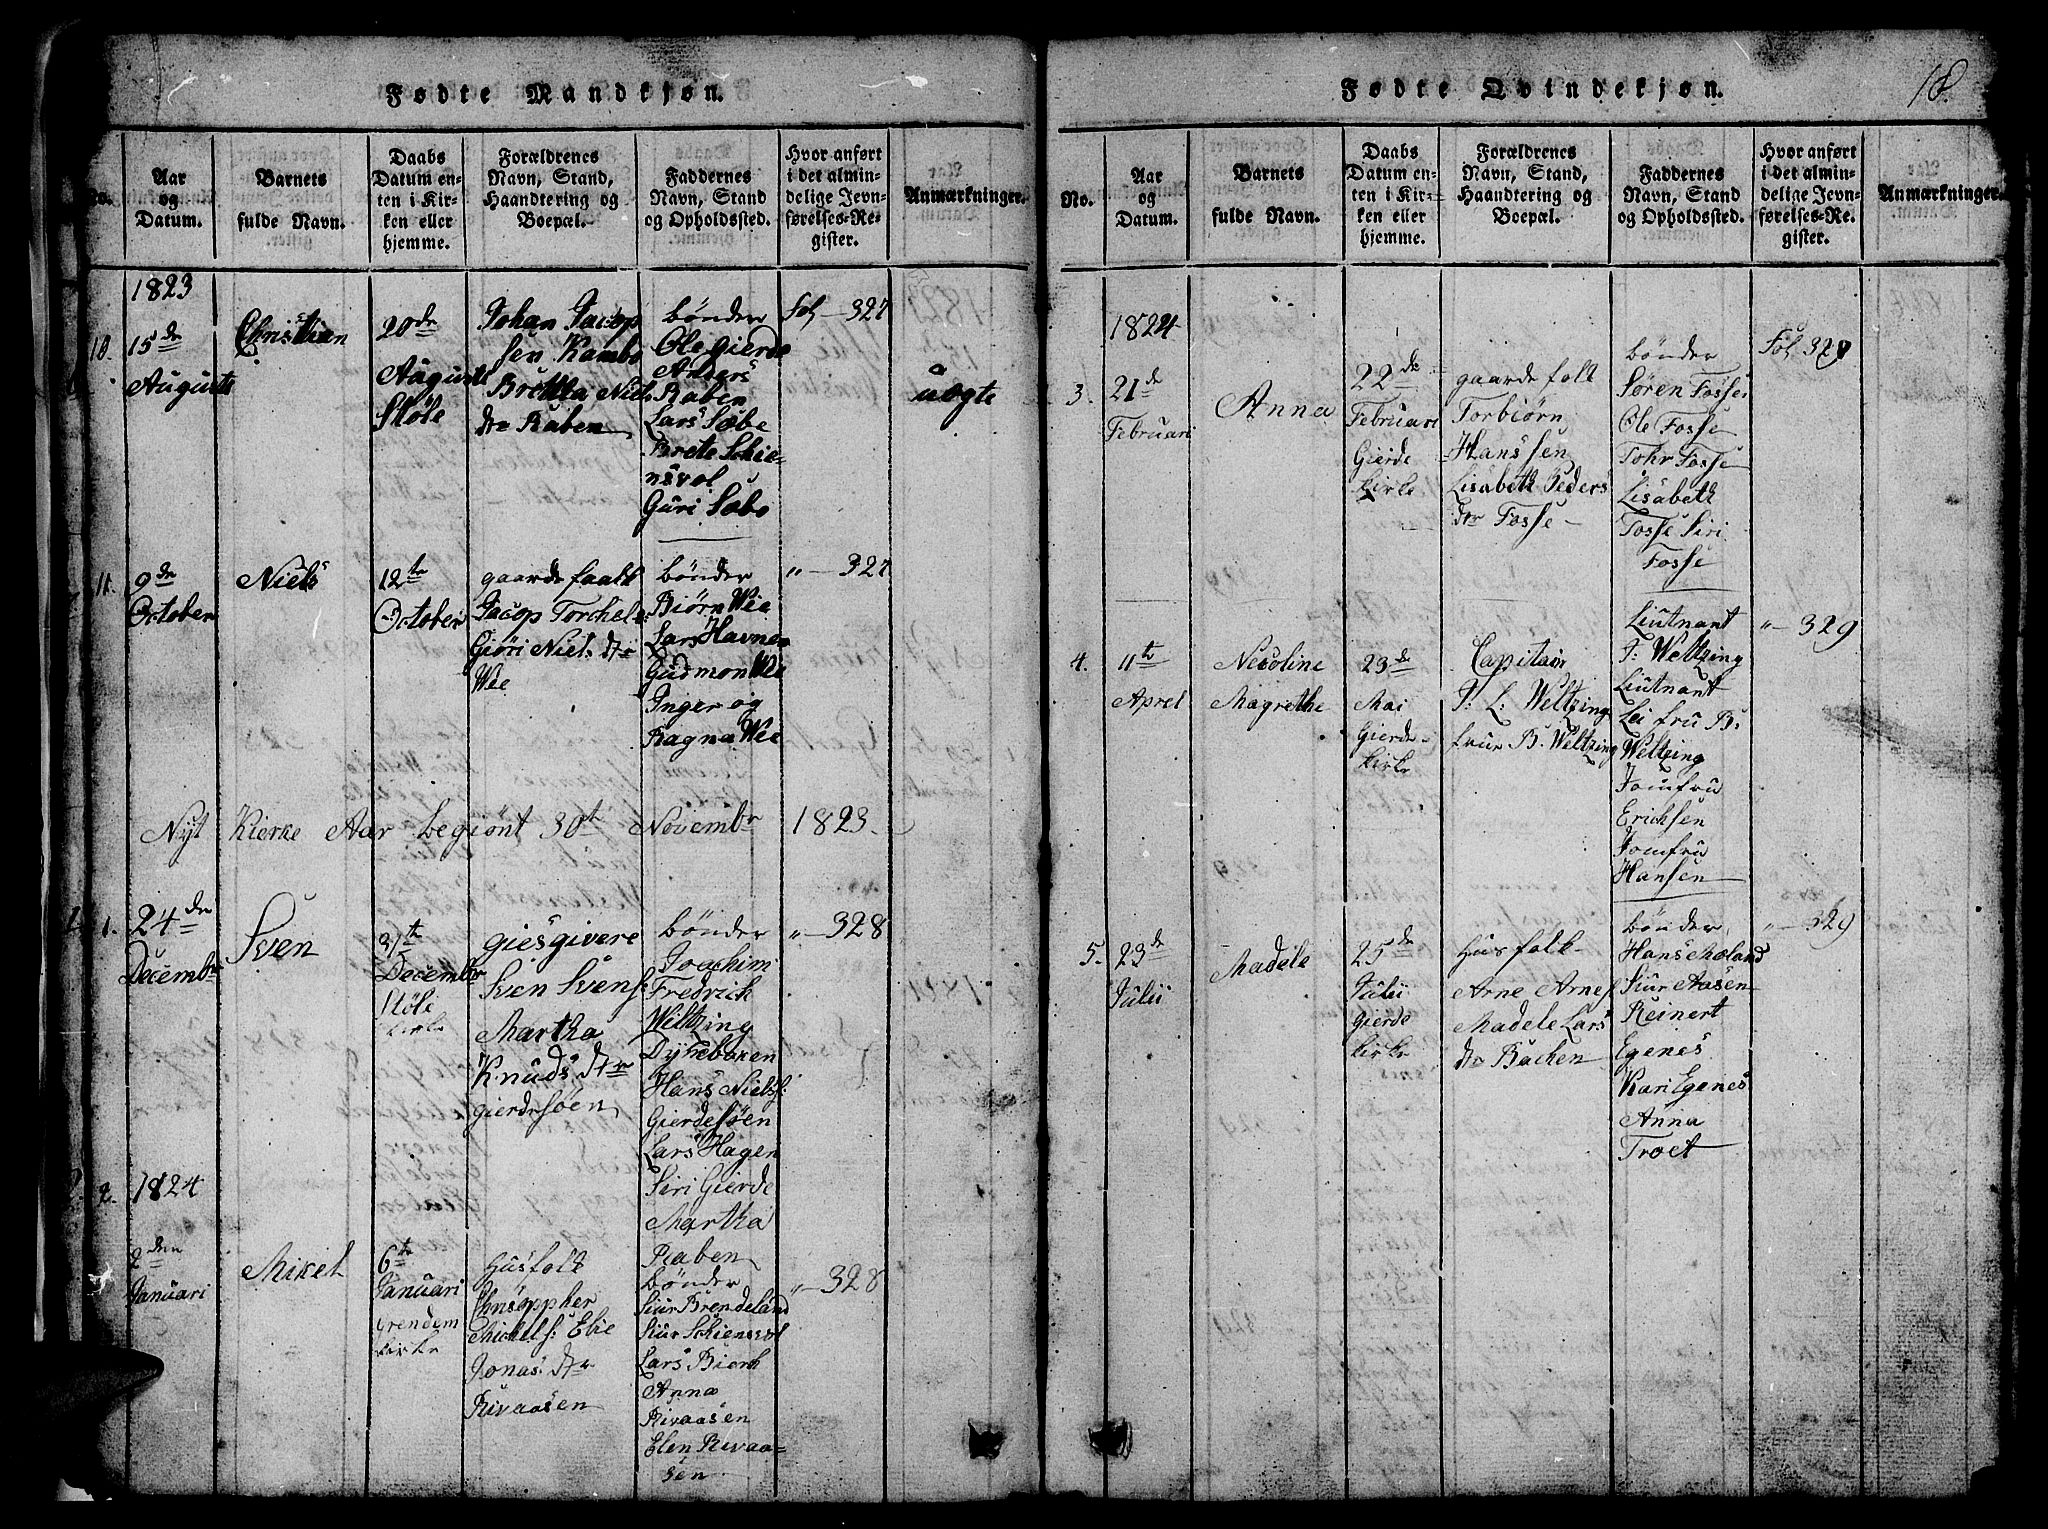 Fødte Mandkjøn.
No.
Aar
og
Datum.
Barnets
fulde Navn.
Daabs
Datum en-
ten i Kir-
ken eller
hjemme.
Forældrenes
Navn, Stand,
Haandtering og
Boepæl.
Faddernes
Navn, Stand
og Opholdssted.
Hvor anført
i det almin-
delige Jevn-
førelses-Re-
gister.
Anmærkninger.
1823
10.
15de
Augusti
Christian
20de
Augusti
Støle
Johan Jacop
sen Rambo
Brettha Niels
dtr Raben
bønder
Ole gierde
Anders
Raben
Lars Sæbe
Brete Schie-
nsvol
Guri Sæbo
Fol - 327
uægte
11.
9de
October
Niels
12te
October
gaarde faalk
Jacop Torchels
Giøri Niels dtr
Wee
bønder
Biørn Wee
Lars Havnen
Gudmon Wee
Inger og
Ragna Wee
" - 327
Nyt Kierke Aar begiønt 30t Novembr 1823.
1.
24de
Decembr
Sven
31te
Decembr
Støle
kirke
giesgivere
Sven Svens:
Martha
Knuds dtr
gierdesøen
bønder
Joachim
Fredrich
Weltzing
Dyngboren
Hans Niels:
Gierdesøen
Lars Hagen
Siri Gierde
Martha
Raben
" - 328
2.
1824
2den
Januari
Mikel
6te
Januari
Grendem
kirke
Husfolk
Christoppher
Michels: Elie
Jonas: dtr
Rivaasen
bønder
Siur Brendeland
Siur Schiensvol
Lars Bierk
Anna
Rivaasen
Elen Rivaa-
sen
" - 328
Fødte Qvindekjøn.
18.
No.
Aar
og
Datum.
Barnets
fulde Navn.
Daabs
Datum en-
ten i Kir-
ken eller
hjemme.
Forældrenes
Navn, Stand,
Haandtering og
Boepæl.
Faddernes
Navn, Stand
og Opholdssted.
Hvor anført
i det almin-
delige Jevn-
førelses-Re-
gister.
Anmærkninger.
1824
3.
21de
Februari
Anna
22de
Februari
Gierde
kirke
gaarde folk
Torbiørn
Hanssen
Lisabeth Peders
dtr Fosse
bønder
Søren Fosse
Ole Fosse
Tohr Fosse
Lisabeth
Fosse Siri
Fosse
Fol 329
4.
11te
Aprel
Necoline
Magrethe
23de
Mai
Gierde
kirke
Capitain
P. L. Weltzing
frue B. Weltzing
Liutnant
P: Weltzing
Liutnant
Lei fru B:
Weltzing
Jomfru
Erichsen
Jomfru
Hansen
" - 329
5.
23de
Julii
Madele
25de
Julii
Gierde
kirke
Husfolk
Arne Arnes
Madele Lars
dtr Bachen
bønder
Hans Moland
Siur Aasen
Reinert
Egenes
Kari Egenes
Anna
Troet
" - 329